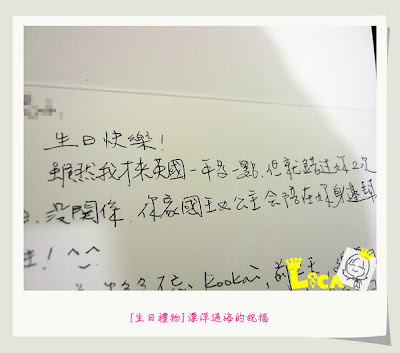 生日快樂!
雖然我才來英國一年多一點,但就錯過妳2次
日.沒關係.你家國王及公主會陪在妳身邊幫
!^_^
Kookai,前
LiCA
[生日禮物]漂洋過海的祝福